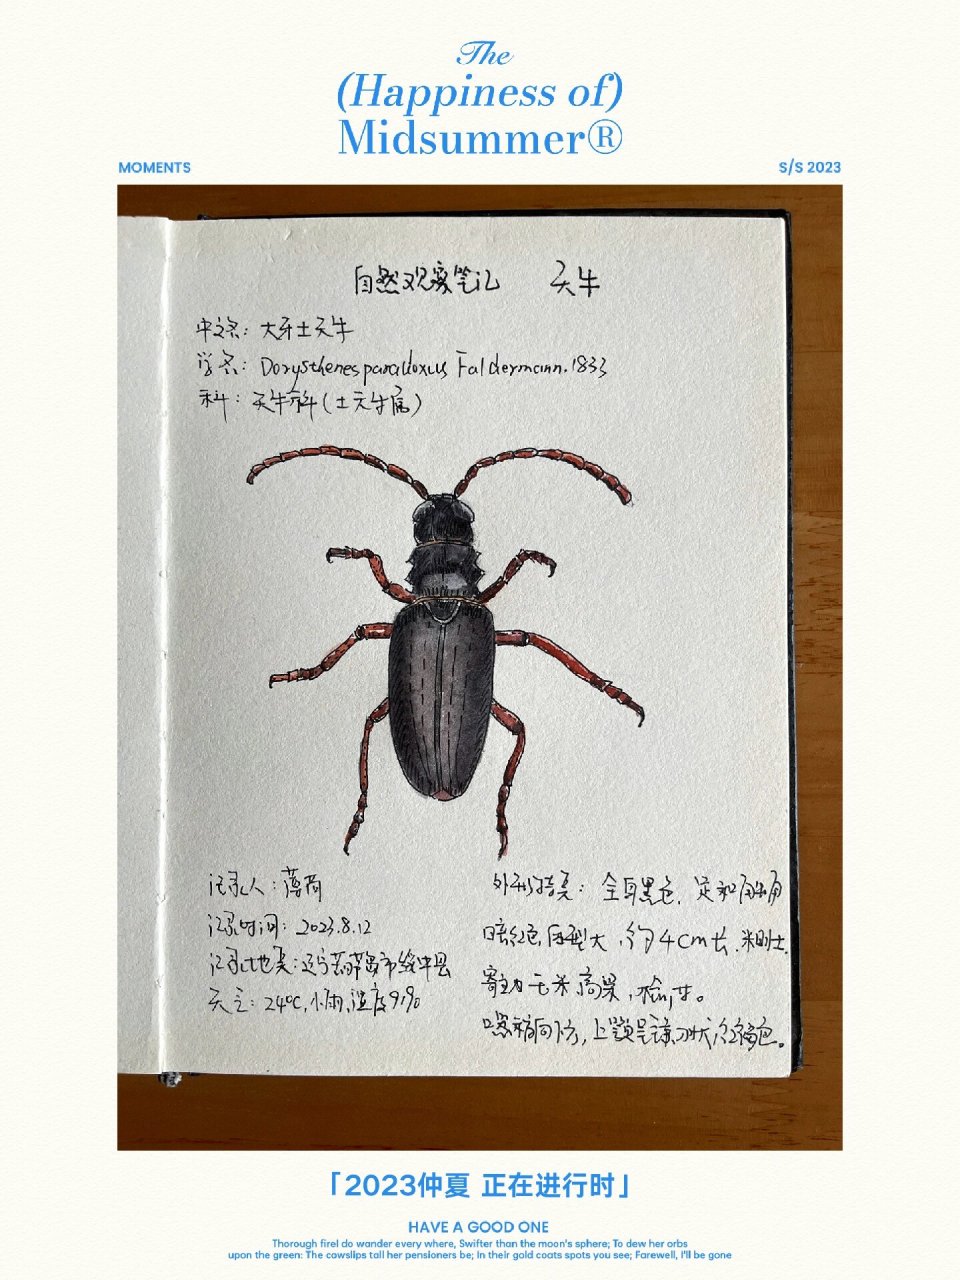 The
(Happiness of)
Midsummer®
MOMENTS
S/S 2023
自然观察笔记 天牛
中文名：大牙土天牛
学名：Dorysthenes paradoxus Faldermann.1833
科：天牛科（土天牛属）
记录人：薄荷
记录时间：2023.8.12
记录地点：辽宁葫芦岛市绥中县
天气：24℃，小雨，湿度91%
外形特点：全身黑色，足和触角
暗红色，体型大，约4cm长
寄主为玉米、高粱，
向下方，上颚呈镰刀状，红褐色。
「2023仲夏 正在进行时」
HAVE A GOOD ONE
Thorough firel do wander every where, Swifter than the moon's sphere; To dew her orbs
upon the green: The cowslips tall her pensioners be; In their gold coats spots you see; Farewell, I'll be gone